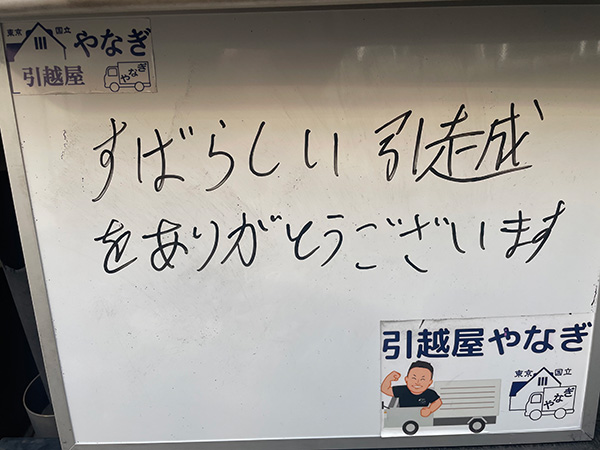 東京 国立 やなぎ
引越屋 やなぎ
すばらしい 引越
をありがとうございます
引越屋やなぎ
東京 国立
やなぎ